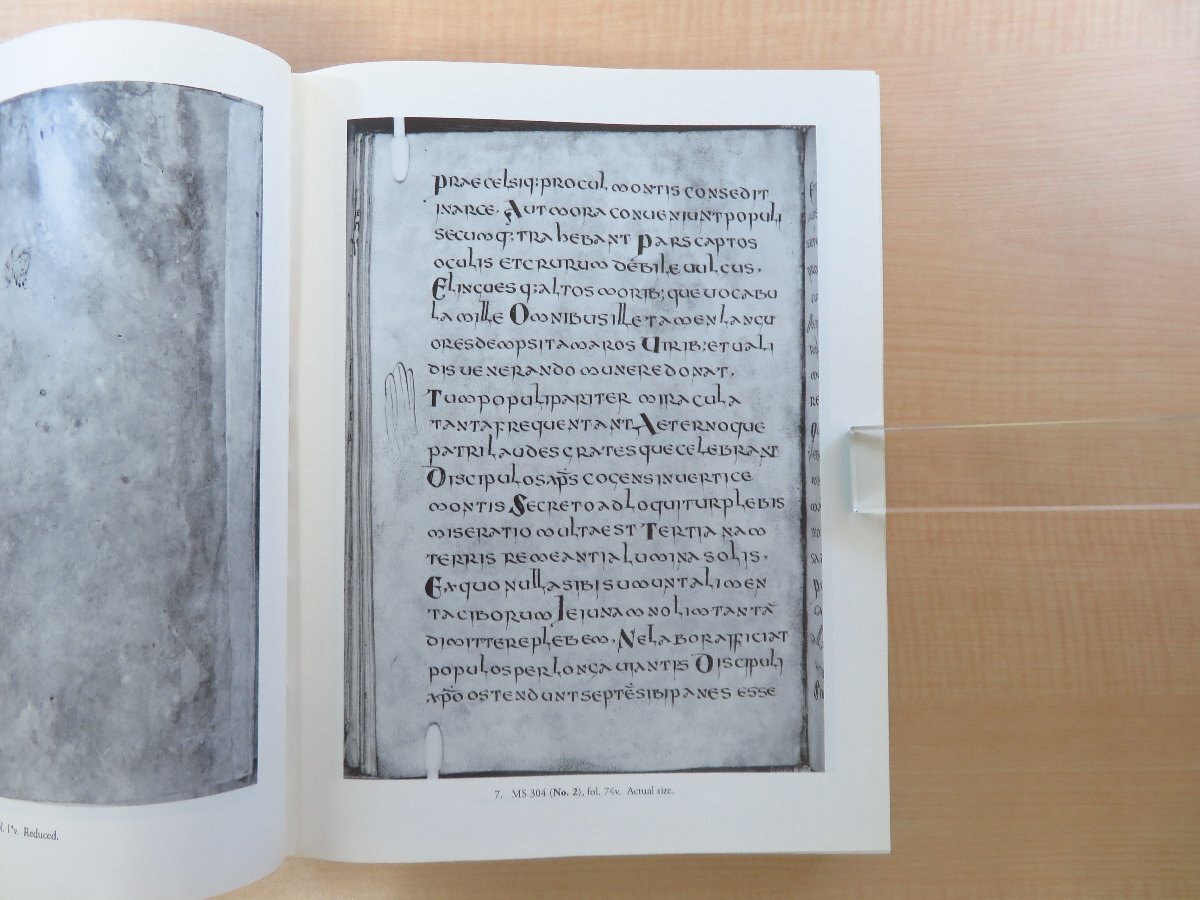 l. I*v. Reduced.
PRAECELSIQ; PROCUL MONTIS CONSEDIT
INARCE. AUT MORA CONUENIUNT POPULI
SECUMQ; TRAHEBANT PARS CAPTOS
OCULIS ET CRURUM DEBILE UULGUS.
ELINGUES Q; ALTOS MORIB; QUE UOCABU
LA MILLE OMNIBUS ILLE TAMEN LANGU
ORES DEMPSIT AMAROS UIRIB; ET UALI
DIS UENERANDO MUNERE DONAT.
TUM POPULI PARITER MIRACULA
TANTA FREQUENTANT AETERNOQUE
PATRI LAUDES GRATESQUE CELEBRANT
DISCIPULOS AP̅S̅ COGENS IN UERTICE
MONTIS SECRETO ADLOQUITUR PLEBIS
MISERATIO MULTA EST TERTIA NAM
TERRIS REMEANTIA LUMINA SOLIS.
EX QUO NULLA SIBI SUMUNT ALIMEN
TA CIBORUM IEIUNAM NOLIM TANTĀ
DIMITTERE PLEBEM. NE LABOR AFFICIAT
POPULOS PER LONGA UIANTES DISCIPULI
XP̅O OSTENDUNT SEPTĒ SIBI PANES ESSE
7. MS 304 (No. 2), fol. 74v. Actual size.